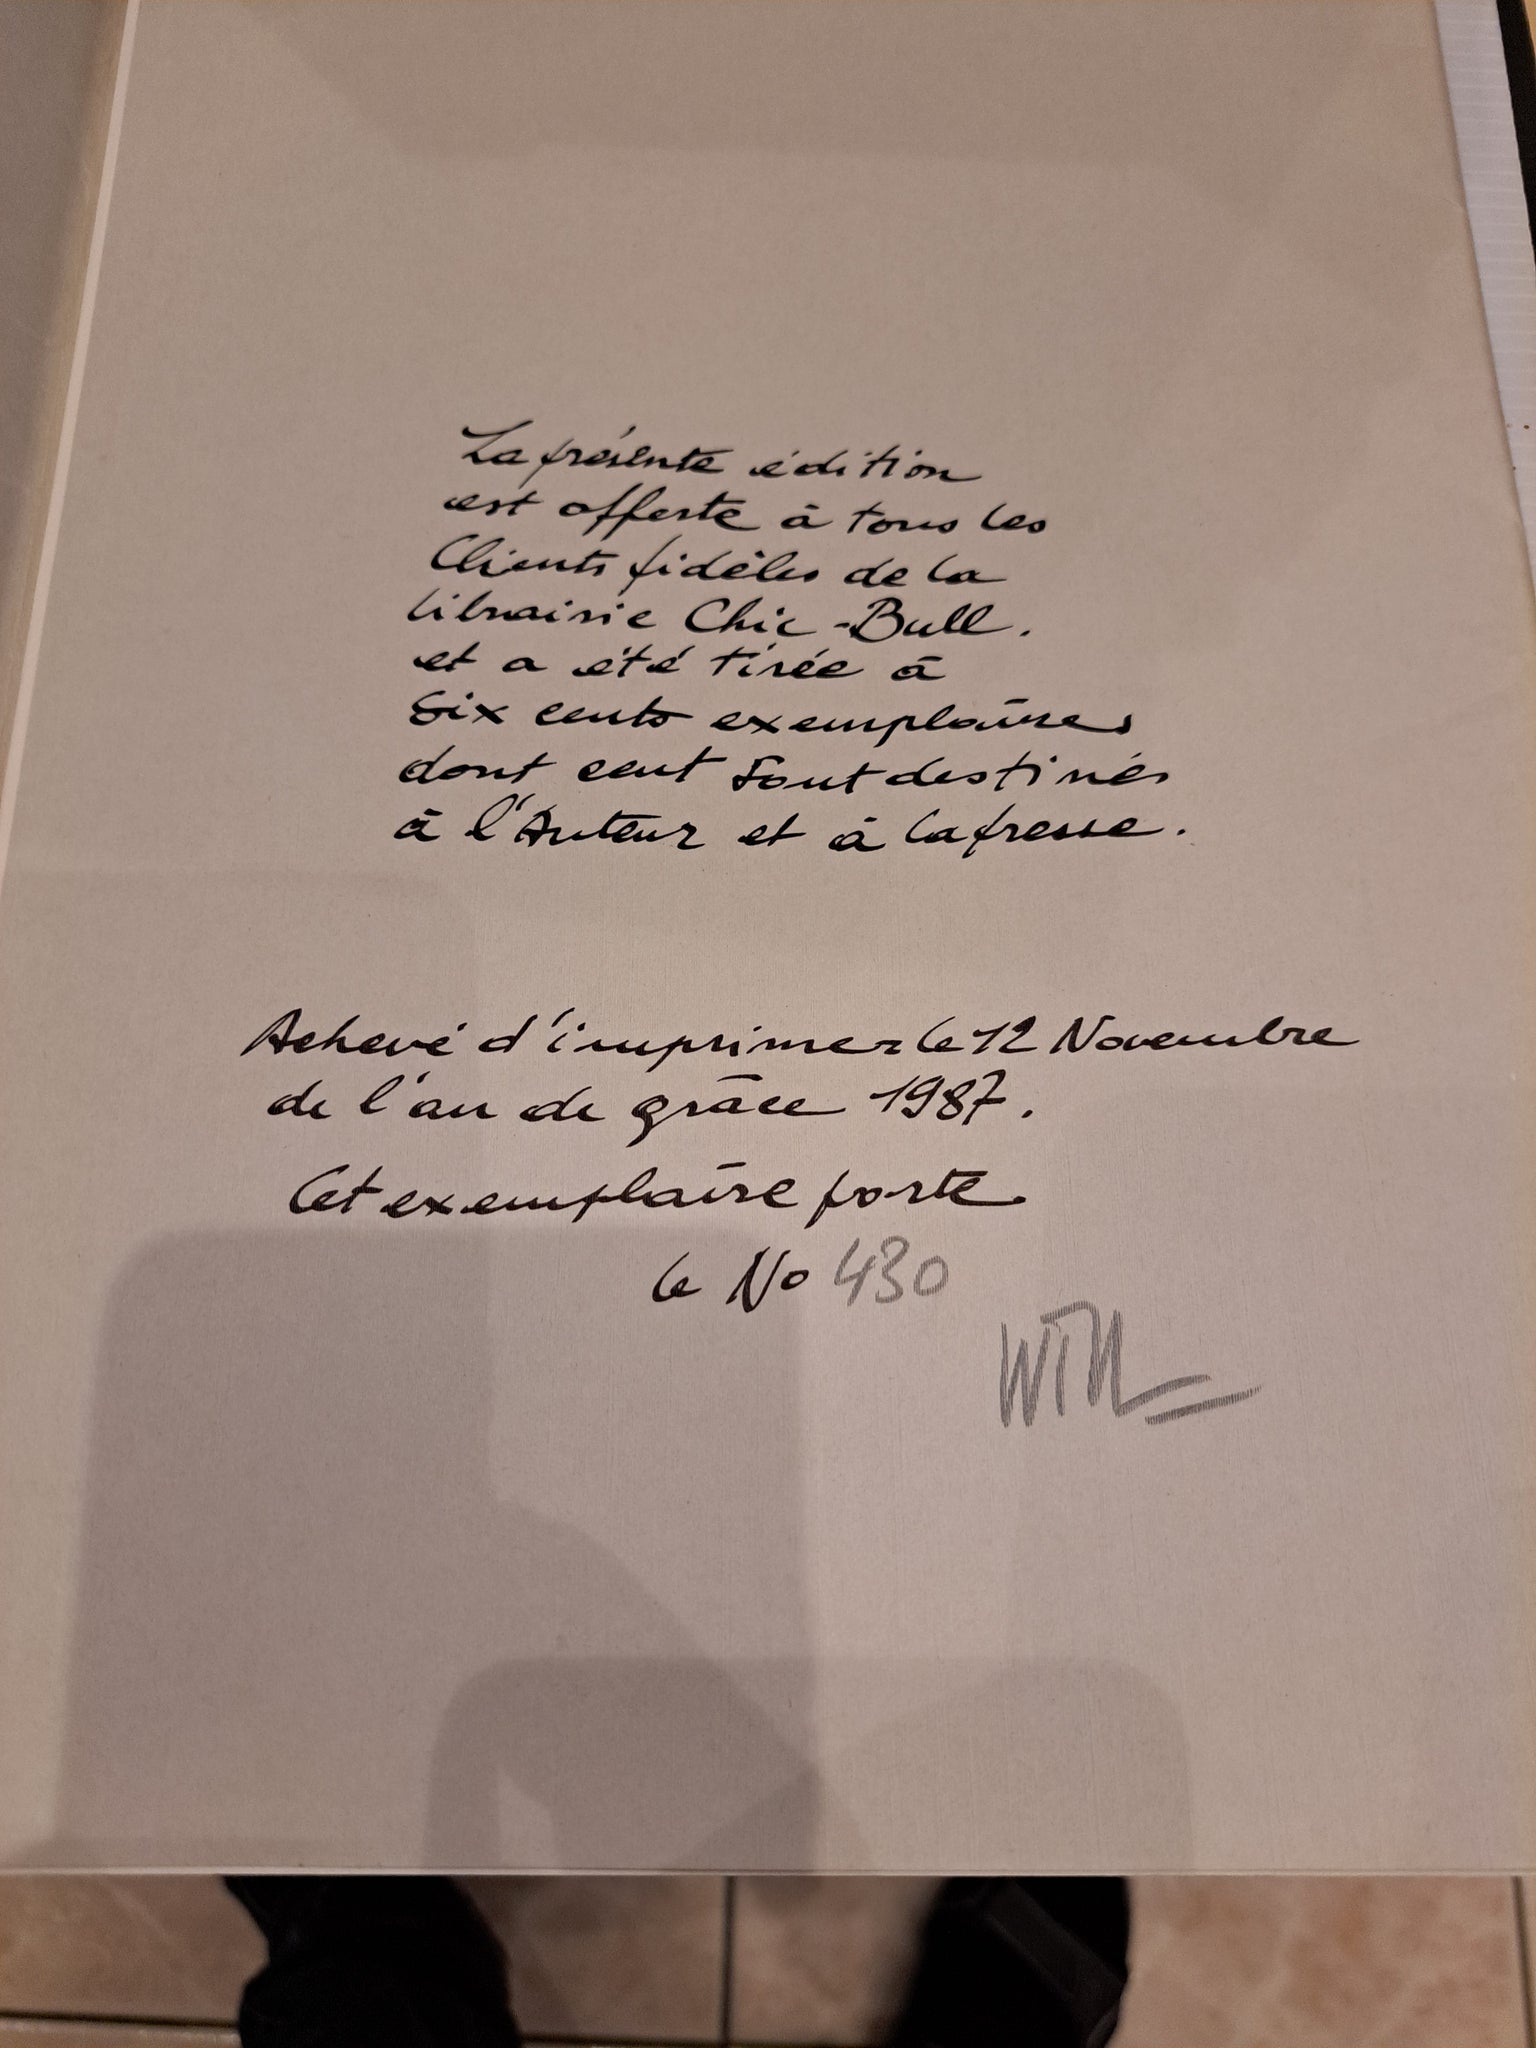 La présente édition
est offerte à tous les
Clients fidèles de la
librairie Chic-Bull.
et a été tirée à
Six cents exemplaires
dont cent sont destinés
à l'Auteur et à la presse.
Achevé d'imprimer le 12 Novembre
de l'an de grâce 1987.
Cet exemplaire porte
le No 430
Will